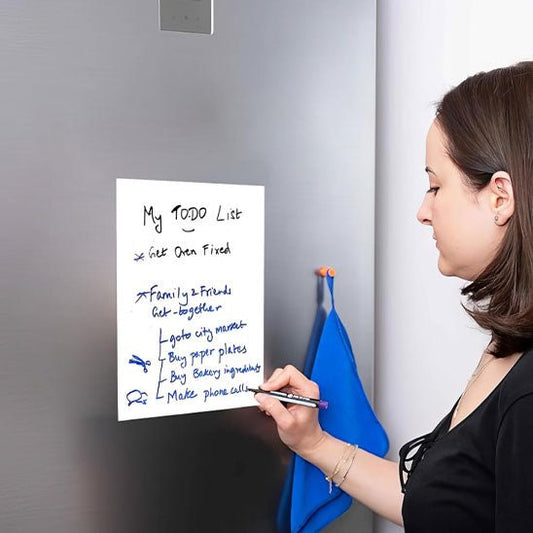 My TODO List
* Get Oven Fixed
* Family & Friends
Get-together
goto city market
Buy paper plates
Buy Bakery ingredients
Make phone calls